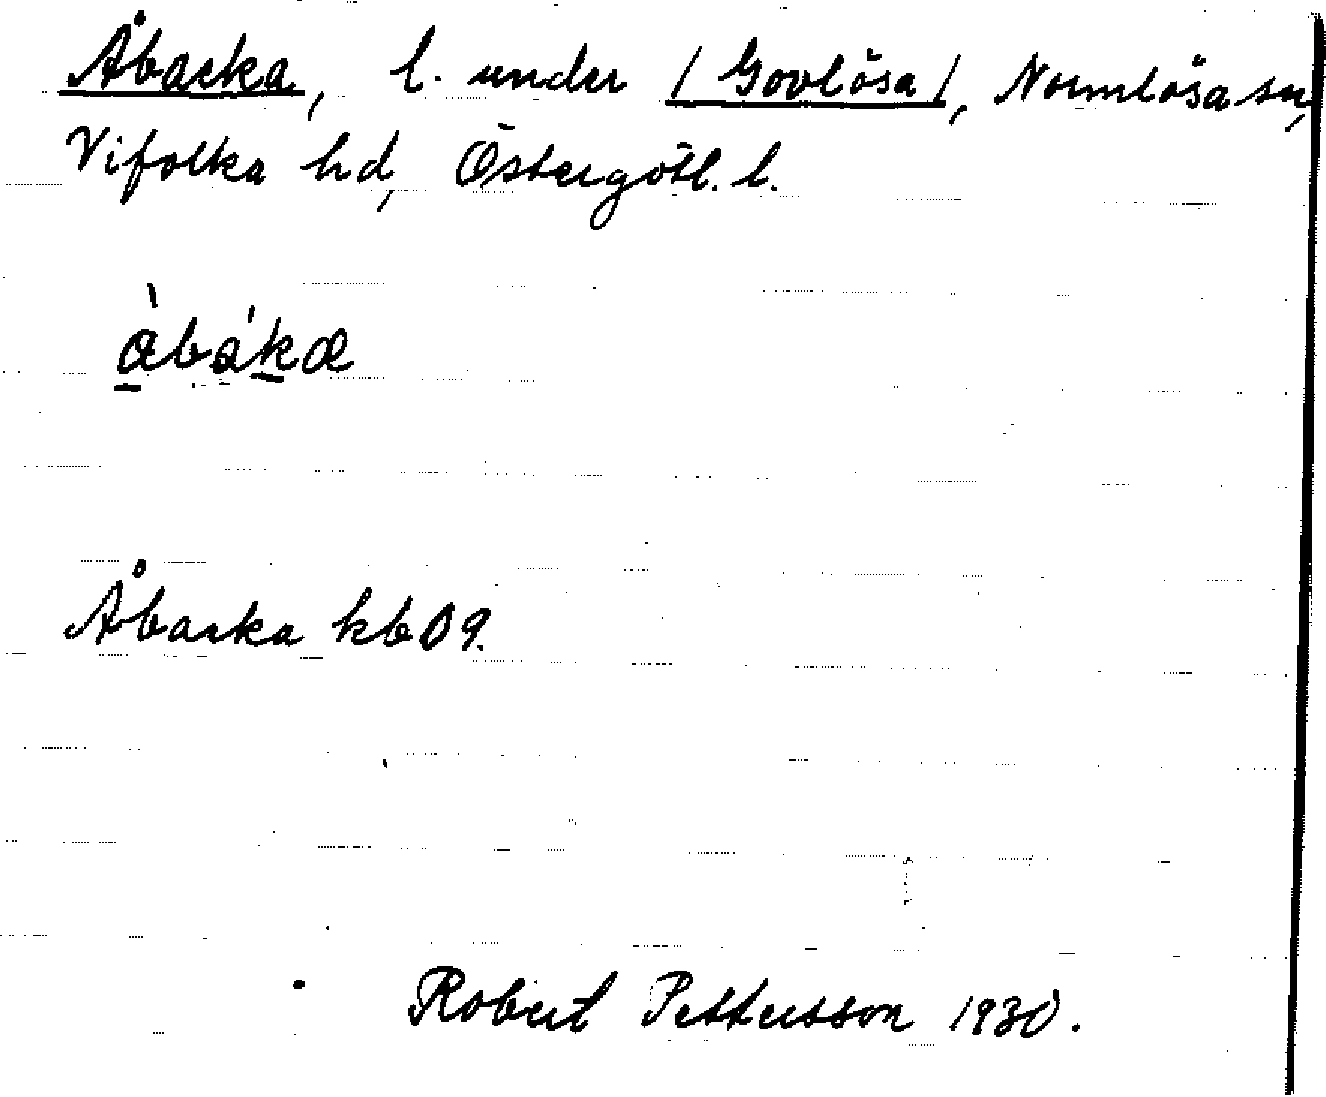 Åbacka, l. under /Govlösa/, Normlösa sn,
Vifolka hd, Östergötl. l.
àbákæ
Åbacka kb 09.
Robert Pettersson 1930.